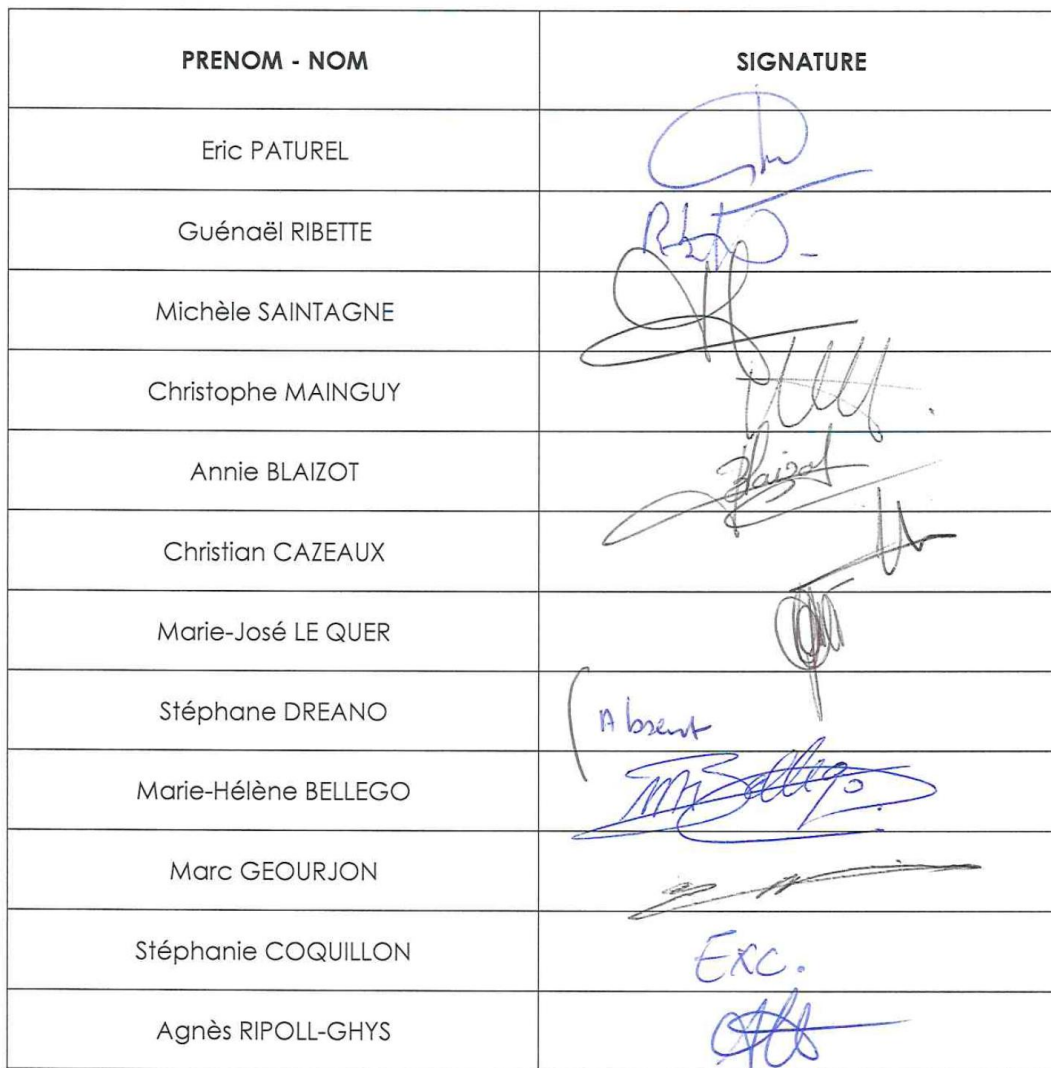 PRENOM - NOM SIGNATURE
Eric PATUREL
Guénaël RIBETTE
Michèle SAINTAGNE
Christophe MAINGUY
Annie BLAIZOT Blaizot
Christian CAZEAUX
Marie-José LE QUER
Stéphane DREANO Absent
Marie-Hélène BELLEGO MHBellego
Marc GEOURJON
Stéphanie COQUILLON Exc.
Agnès RIPOLL-GHYS